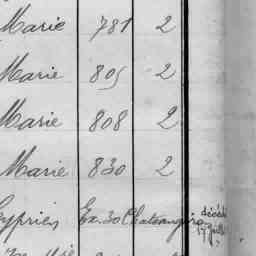 Marie 781 2
Marie 805 2
Marie 808 2
Marie 830 2
Cyprien Ex. 30 décédé
17 juillet